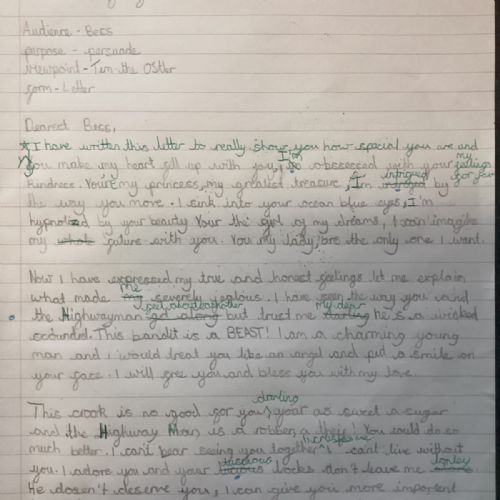 Audience - Bess
purpose - persuade
viewpoint - Tim the Ostler
form - Letter
Dearest Bess,
I have written this letter to really show you how special you are and my feelings for you
You make my heart fill up with you, I'm so obsessed with your
kindness. You're my princess, my greatest treasure, I'm intrigued by
the way you move. I sink into your ocean blue eyes, I'm
hypnotized by your beauty Your the girl of my dreams, I can imagine
my future with you. You my lady, are the only one I want.
Now I have expressed my true and honest feelings let me explain
what made me severely jealous. I have seen the way you and
the Highwayman get along but trust me my dear he is a wicked
scoundrel. This bandit is a BEAST! I am a charming young
man and I would treat you like an angel and put a smile on
your face. I will free you and bless you with my love.
This crook is no good for you, darling your as sweet a sugar
and the Highway Man is a robber, a theif! You could do so
much better. I can't bear seeing you together. I can't live without
you. I adore you and your luscious locks don't leave me lonely
He dosen't deserve you, I can give you more important